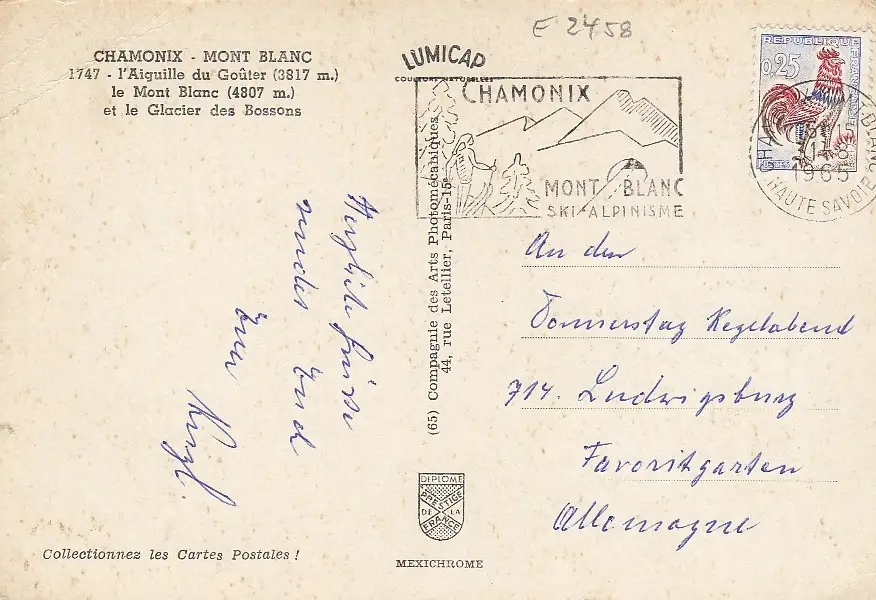 E 2458
CHAMONIX - MONT BLANC
1747 - l'Aiguille du Goûter (3817 m.)
le Mont Blanc (4807 m.)
et le Glacier des Bossons
LUMICAP
COULEURS NATURELLES
CHAMONIX
MONT BLANC
SKI-ALPINISME
REPUBLIQUE FRANÇAISE
0,25
1965
HAUTE SAVOIE
Herzliche Grüsse
sendet Euch
Euer
(65) Compagnie des Arts Photomécaniques
44, rue Letellier, Paris-15e
An den
Donnerstag Kegelabend
714. Ludwigsburg
Favoritgarten
Allemagne
DIPLOME
PRESTIGE
DE LA
FRANCE
Collectionnez les Cartes Postales !
MEXICHROME